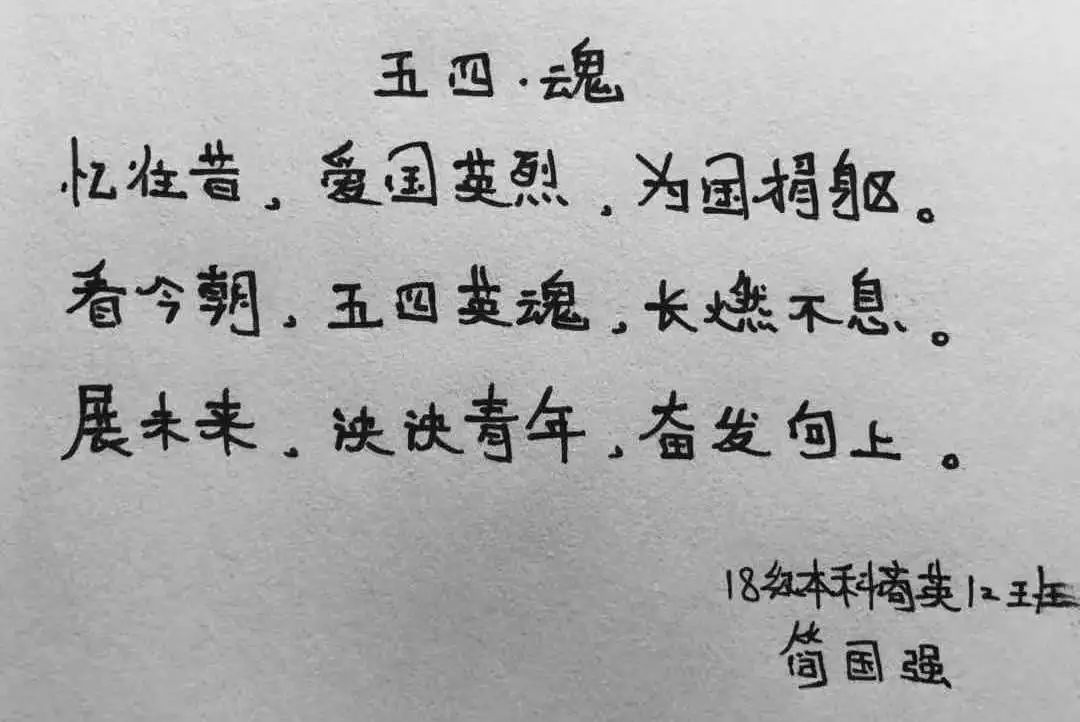 五四·魂
忆往昔，爱国英烈，为国捐躯。
看今朝，五四英魂，长燃不息。
展未来，泱泱青年，奋发向上。
18级本科商英12班
简国强